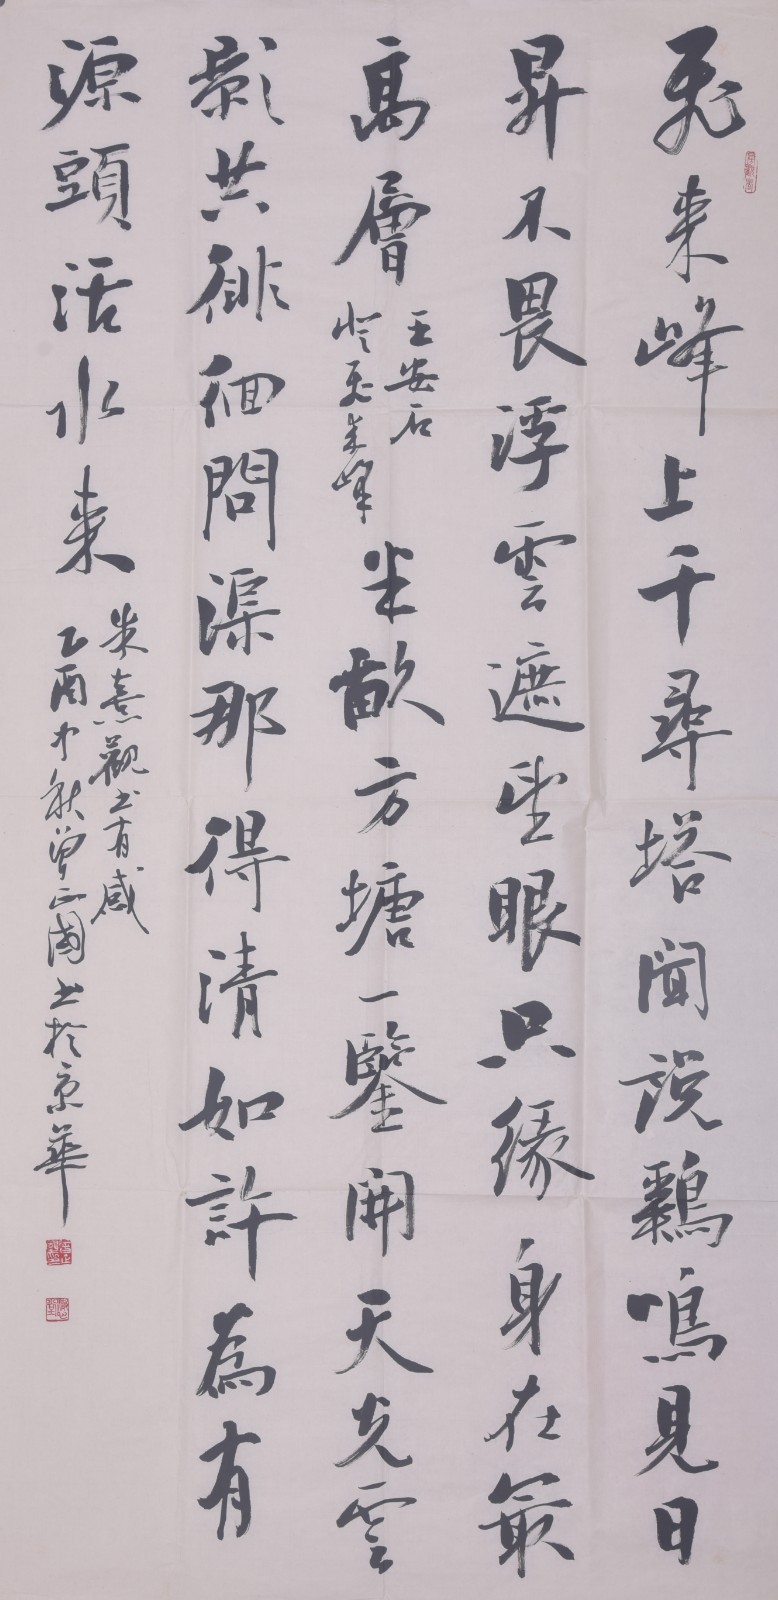 飛來峰上千尋塔聞説鷄鳴見日
昇不畏浮雲遮望眼只緣身在最
高層
王安石
登飛來峰
半畝方塘一鑒開天光雲
影共徘徊問渠那得清如許為有
源頭活水来
朱熹觀書有感
乙酉中秋曾正國書於京華